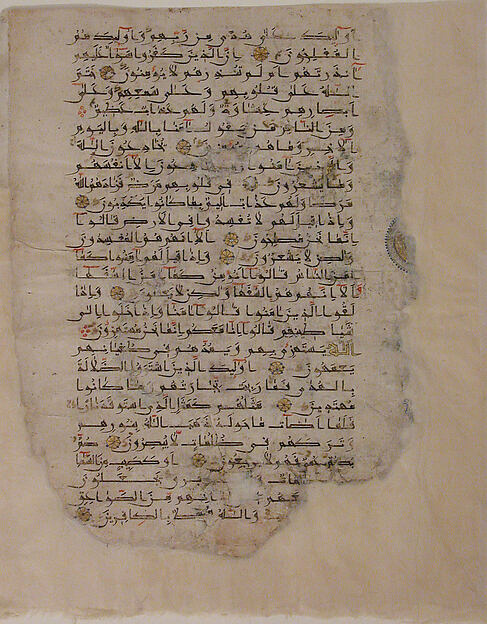 اوليك على هدى من ربهم واوليك هم
المفلحون ان الذين كفروا سوا عليهم
انذرتهم ام لم تنذرهم لا يومنون ختم
الله على قلوبهم وعلى سمعهم وعلى
ابصارهم غشاوة ولهم عذاب عظيم
ومن الناس من يقول امنا بالله وباليوم
الاخر وما هم يخادعون الله
والذين امنوا وما يخدعون الا انفسهم
وما يشعرون في قلوبهم مرض فزادهم الله
مرضا ولهم عذاب اليم بما كانوا يكذبون
واذا قيل لهم لا تفسدوا في الارض قالوا
انما نحن مصلحون الا انهم هم المفسدون
ولكن لا يشعرون واذا قيل لهم امنوا كما
امن الناس قالوا انومن كما امن السفها
الا انهم هم السفها ولكن لا يعلمون واذا
لقوا الذين امنوا قالوا امنا واذا خلوا الى
شياطينهم قالوا انا معكم انما نحن مستهزون
الله يستهزئ بهم ويمدهم في طغيانهم
يعمهون اوليك الذين اشتروا الضلالة
بالهدى فما ربحت تجارتهم وما كانوا
مهتدين مثلهم كمثل الذي استوقد نارا
فلما اضات ما حوله ذهب الله بنورهم
وتركهم في ظلمات لا يبصرون صم
بكم عمي فهم لا يرجعون او كصيب من السما
وبرق يجعلون
اذانهم من الصواعق
والله بالكافرين